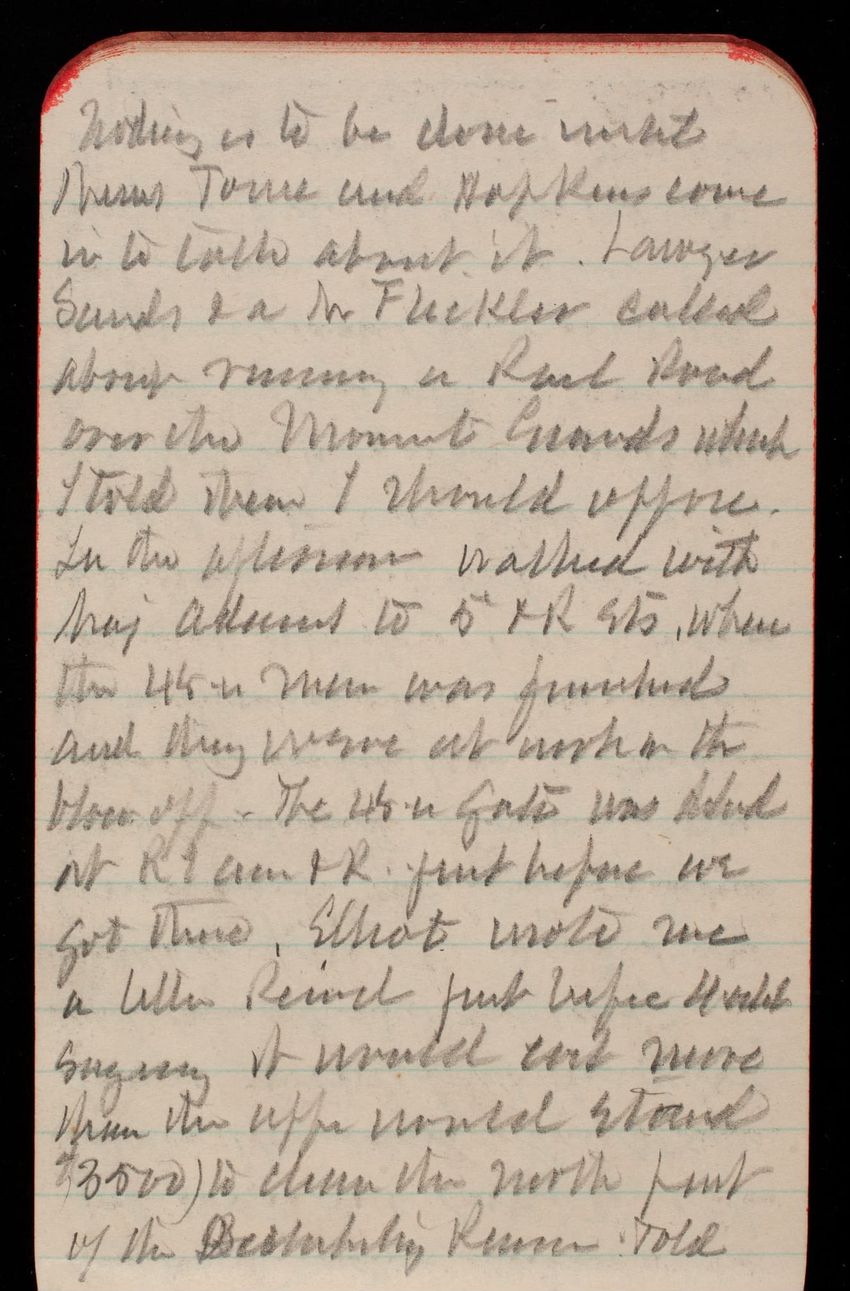 Nothing is to be done until
Messrs Towne and Hopkins come
in to talk about it. Lawyer
Sands & a Mr Fleckler called
about running a Rail Road
over the Monumt Grounds which
I told them I should oppose.
In the afternoon walked with
Maj Adams to 5 & R Sts, when
the 48-in main was finished
and they were at work on the
blow off - The 48-in gate was
at R I ave & R. just before we
got there, Elliot wrote me
a letter Recived just before
Saying it would cost more
than the appr would Stand
$3500) to clean the north part
of the Receiving Reserv. Told